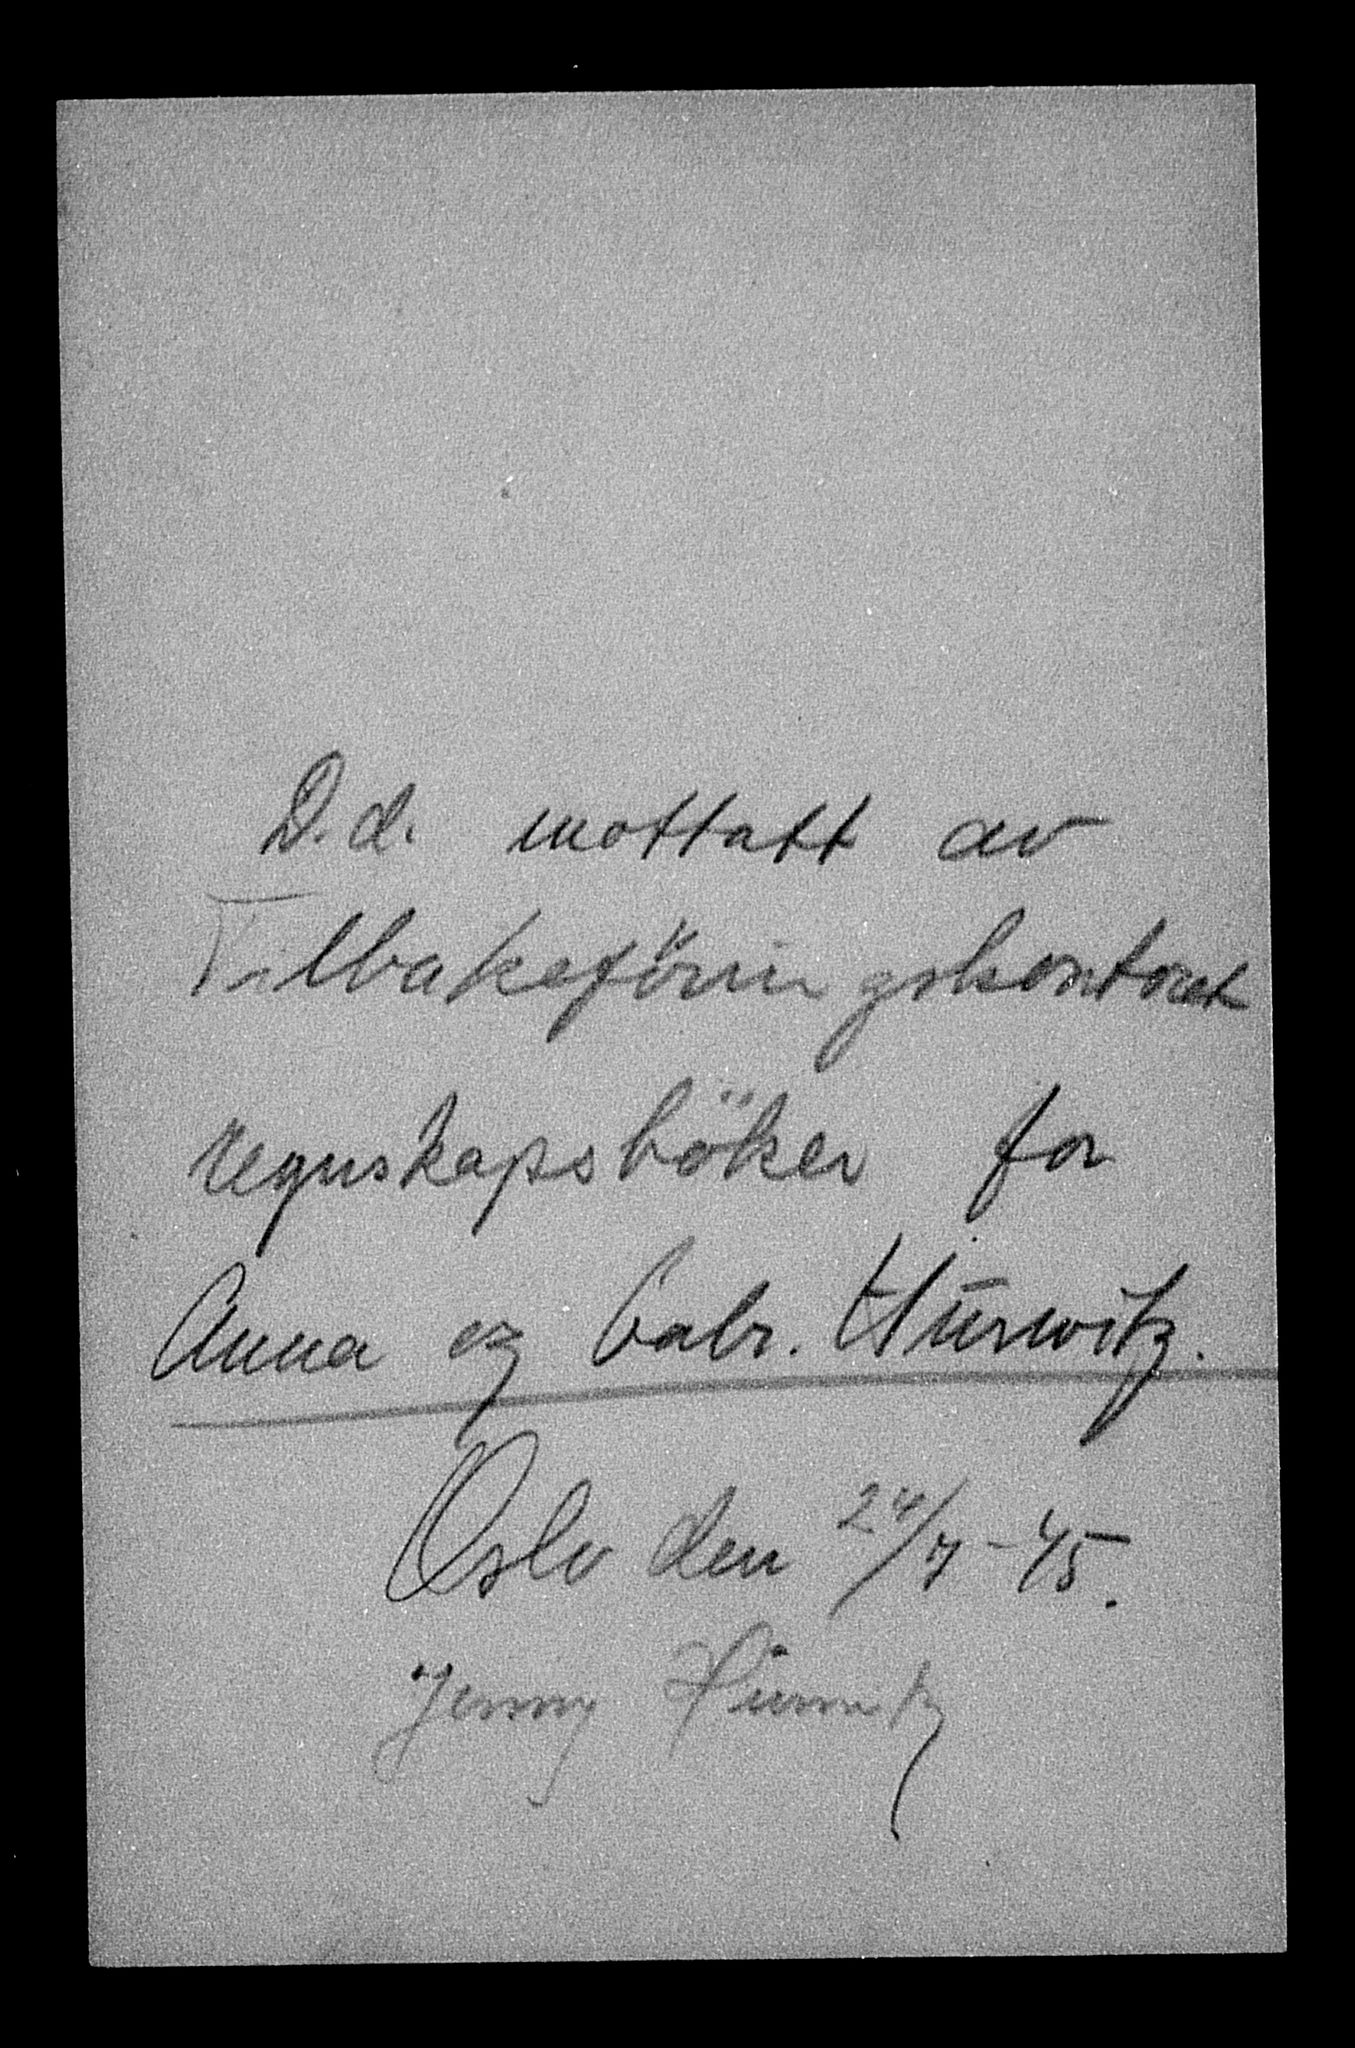 D.d. mottatt av
Tilbakeföringskontoret
regnskapsböker for
Anna og Gabr. Hurwitz.
Oslo den 24/7-45.
Jenny Hurwitz